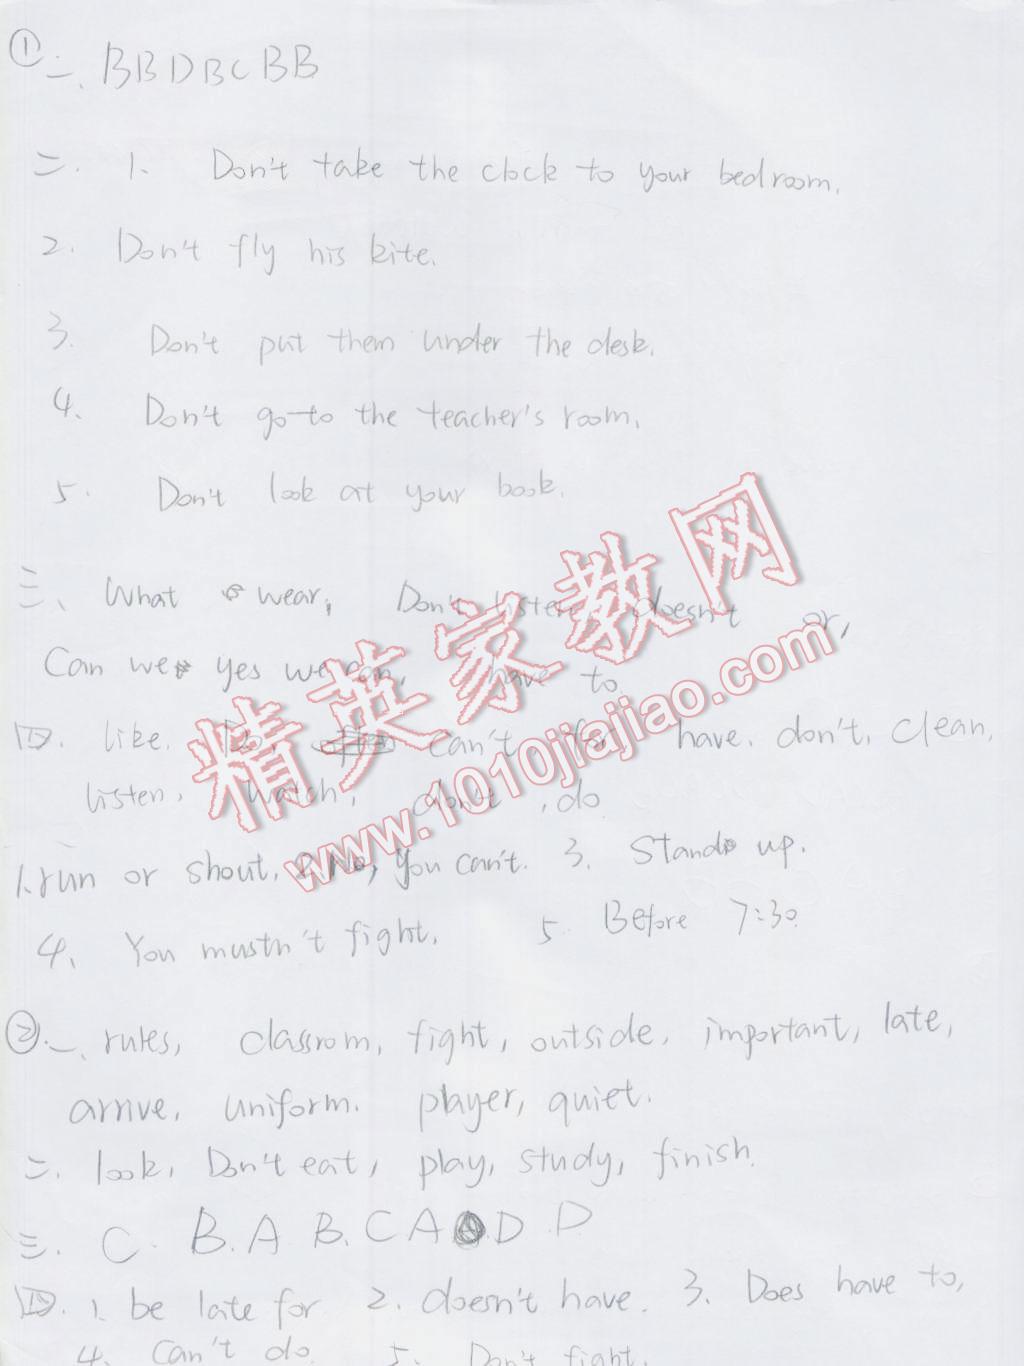 ① 一、BBDBCBB
二. 1. Don't take the clock to your bedroom.
2. Don't fly his kite.
3. Don't put them under the desk.
4. Don't go to the teacher's room.
5. Don't look at your book.
三、What wear, Don't listen doesn't or,
Can we yes we can, have to.
四. like. Do, can't for have. don't. clean,
listen, watch, don't, do
1. run or shout, 2 No, you can't. 3. Stand up.
4、You mustn't fight. 5. Before 7:30.
②. 一、rules, classrom, fight, outside, important, late,
arrive, uniform. player, quiet.
二. look, Don't eat, play, study, finish.
三. C. B. A B. C A D D
四. 1. be late for 2. doesn't have. 3. Does have to,
4. can't do 5. Don't fight.
精英家教网
www.1010jiajiao.com